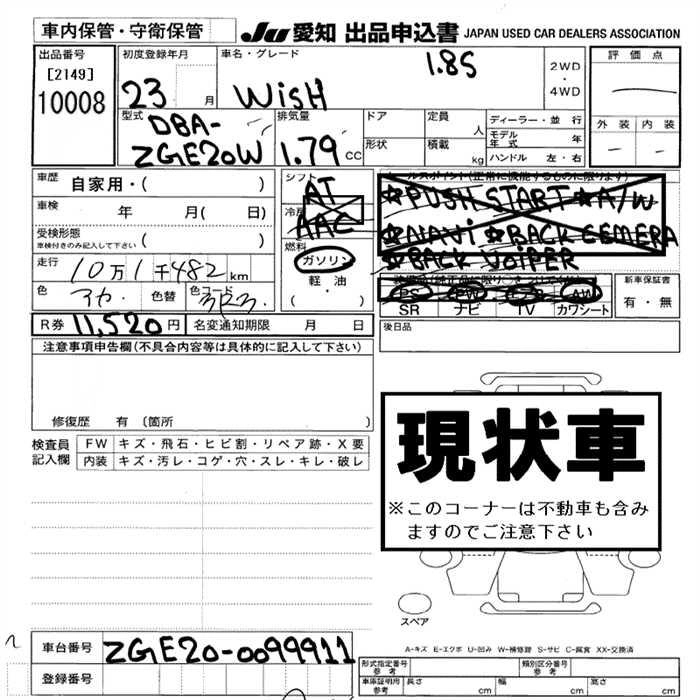 車内保管・守衛保管
Ju 愛知 出品申込書 JAPAN USED CAR DEALERS ASSOCIATION
出品番号
[2149]
10008
初度登録年月
23 月
車名・グレード
WiSH 1.8S
2WD
・
4WD
評価点
外装 内装
型式
DBA-
ZGE20W
排気量
1.79 CC
ドア
形状
定員 人
積載 kg
ディーラー・並 行
モデル年式 年
ハンドル 左・右
車歴 自家用・( )
車検 年 月( 日)
受検形態
車検付きのみ記入して下さい ( )
走行 10万1千482 km
色 アカ 色替 色コード 3R3
シフト
AT
冷房
AAC
燃料
ガソリン
軽・油
( ・ )
セールスポイント(正常に機能するものに限ります)
☆PUSH START ☆A/W
☆NAVI ☆BACK CEMERA
☆BACK WOIPER
PS PW
SR ナビ TV カワシート
新車保証書
有・無
R券 11,520円
名変通知期限 月 日
後日品
注意事項申告欄(不具合内容等は具体的に記入して下さい)
修復歴 有 〔箇所 〕
検査員
記入欄
FW キズ・飛石・ヒビ割・リペア跡・X要
内装 キズ・汚レ・コゲ・穴・スレ・キレ・破レ
現状車
※このコーナーは不動車も含み
ますのでご注意下さい
スペア
A-キズ E-エクボ U-凹み W-補修跡 S-サビ C-腐食 XX-交換済
車台番号 ZGE20-0099911
登録番号
形式指定番号
参考
類別区分番号
参考
車庫証明用
参考
長さ cm 幅 cm 高さ cm